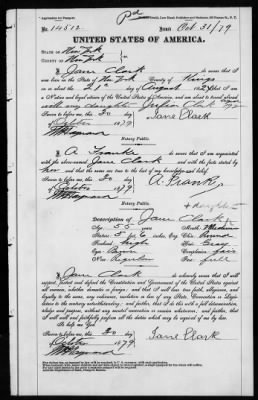 No. 14512 Issued Oct 31/79
UNITED STATES OF AMERICA.
STATE OF New York
COUNTY OF New York
I, Jane Clark do swear that I
was born in the State of New York County of Kings
on or about the 21st day of August
that I am
a Native and loyal citizen of the United States, and am about to travel abroad
with my daughter Clark
Sworn to before me, this 30 day
of October 1879 Jane Clark
Notary Public.
I, A. Franks do swear that I am acquainted
with the above-named Jane Clark and with the facts stated by
her and that the same are true to the best of my knowledge and belief.
Sworn to before me, this 30 day
of October 1879 A. Franks
Notary Public.
Description of Jane Clark
Age, 55 years Mouth, Medium
Stature, 5 ft, 6 inches, Eng. Chin, Round
Forehead, high Hair, Gray
Eyes, Complexion, fair
Nose, Regular Face, full
I, Jane Clark do solemnly swear that I will
support, protect and defend the Constitution and Government of the United States against
all enemies, whether domestic or foreign; and that I will bear true faith, allegiance, and
loyalty to the same, any ordinance, resolution or law of any State, Convention or Legis-
lature to the contrary notwithstanding; and further, that I do this with a full determination,
pledge and purpose, without any mental reservation or evasion whatsoever; and further, that
I will well and faithfully perform all the duties which may be required of me by law.
So help me God.
Sworn to before me, this 30 day
of October 1879 Jane Clark
Notary Public.